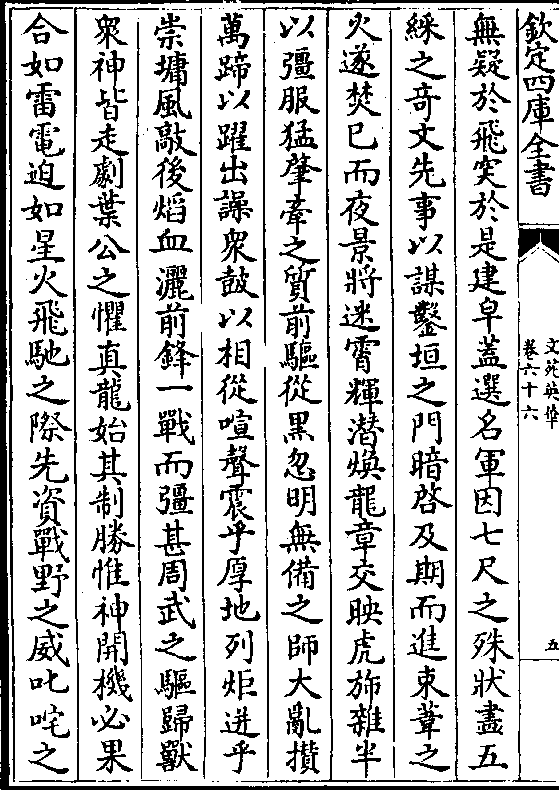 欽定四庫全書
文苑英華
卷六十六
五
無疑於飛突於是建皁葢選名軍因七尺之殊狀盡五
綵之竒文先事以謀鑿垣之門暗啓及期而進束葦之
火遂焚已而夜景將迷霄輝潜煥龍章交映虎斾雜半
以彊服猛肇牽之質前驅從黒忽明無備之師大亂攅
萬蹄以躍出譟衆鼓以相從喧聲震乎厚地列炬迸乎
崇墉風敲後熖血灑前鋒一戰而彊甚周武之驅歸獸
衆神皆走劇葉公之懼真龍始其制勝惟神開機必果
合如雷電迫如星火飛馳之際先資戰野之威叱咤之